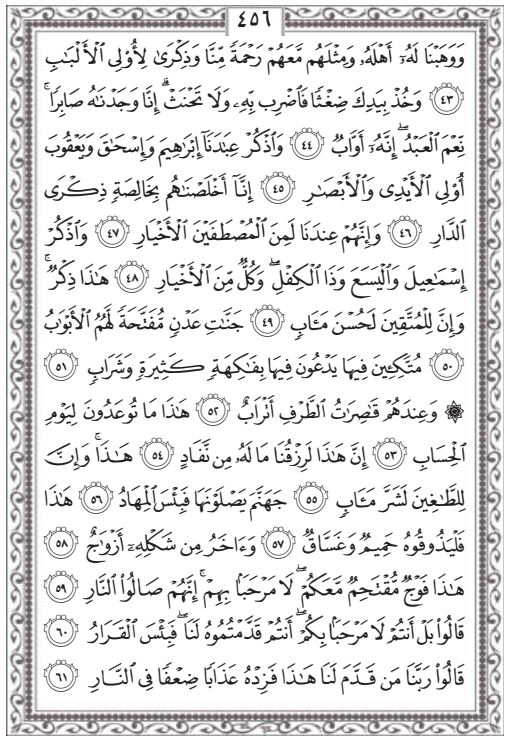 ٤٥٦
وَوَهَبْنَا لَهُۥٓ أَهْلَهُۥ وَمِثْلَهُم مَّعَهُمْ رَحْمَةً مِّنَّا وَذِكْرَىٰ لِأُو۟لِى ٱلْأَلْبَـٰبِ
٤٣ وَخُذْ بِيَدِكَ ضِغْثًا فَٱضْرِب بِّهِۦ وَلَا تَحْنَثْ ۗ إِنَّا وَجَدْنَـٰهُ صَابِرًا ۚ
نِّعْمَ ٱلْعَبْدُ ۖ إِنَّهُۥٓ أَوَّابٌ ٤٤ وَٱذْكُرْ عِبَـٰدَنَآ إِبْرَٰهِيمَ وَإِسْحَـٰقَ وَيَعْقُوبَ
أُو۟لِى ٱلْأَيْدِى وَٱلْأَبْصَـٰرِ ٤٥ إِنَّآ أَخْلَصْنَـٰهُم بِخَالِصَةٍ ذِكْرَى
ٱلدَّارِ ٤٦ وَإِنَّهُمْ عِندَنَا لَمِنَ ٱلْمُصْطَفَيْنَ ٱلْأَخْيَارِ ٤٧ وَٱذْكُرْ
إِسْمَـٰعِيلَ وَٱلْيَسَعَ وَذَا ٱلْكِفْلِ ۖ وَكُلٌّ مِّنَ ٱلْأَخْيَارِ ٤٨ هَـٰذَا ذِكْرٌ ۚ
وَإِنَّ لِلْمُتَّقِينَ لَحُسْنَ مَـَٔابٍ ٤٩ جَنَّـٰتِ عَدْنٍ مُّفَتَّحَةً لَّهُمُ ٱلْأَبْوَٰبُ
٥٠ مُتَّكِـِٔينَ فِيهَا يَدْعُونَ فِيهَا بِفَـٰكِهَةٍ كَثِيرَةٍ وَشَرَابٍ ٥١
۞ وَعِندَهُمْ قَـٰصِرَٰتُ ٱلطَّرْفِ أَتْرَابٌ ٥٢ هَـٰذَا مَا تُوعَدُونَ لِيَوْمِ
ٱلْحِسَابِ ٥٣ إِنَّ هَـٰذَا لَرِزْقُنَا مَا لَهُۥ مِن نَّفَادٍ ٥٤ هَـٰذَا ۚ وَإِنَّ
لِلطَّـٰغِينَ لَشَرَّ مَـَٔابٍ ٥٥ جَهَنَّمَ يَصْلَوْنَهَا فَبِئْسَ ٱلْمِهَادُ ٥٦ هَـٰذَا
فَلْيَذُوقُوهُ حَمِيمٌ وَغَسَّاقٌ ٥٧ وَءَاخَرُ مِن شَكْلِهِۦٓ أَزْوَٰجٌ ٥٨
هَـٰذَا فَوْجٌ مُّقْتَحِمٌ مَّعَكُمْ ۖ لَا مَرْحَبًۢا بِهِمْ ۚ إِنَّهُمْ صَالُوا۟ ٱلنَّارِ ٥٩
قَالُوا۟ بَلْ أَنتُمْ لَا مَرْحَبًۢا بِكُمْ ۖ أَنتُمْ قَدَّمْتُمُوهُ لَنَا ۖ فَبِئْسَ ٱلْقَرَارُ ٦٠
قَالُوا۟ رَبَّنَا مَن قَدَّمَ لَنَا هَـٰذَا فَزِدْهُ عَذَابًا ضِعْفًا فِى ٱلنَّارِ ٦١